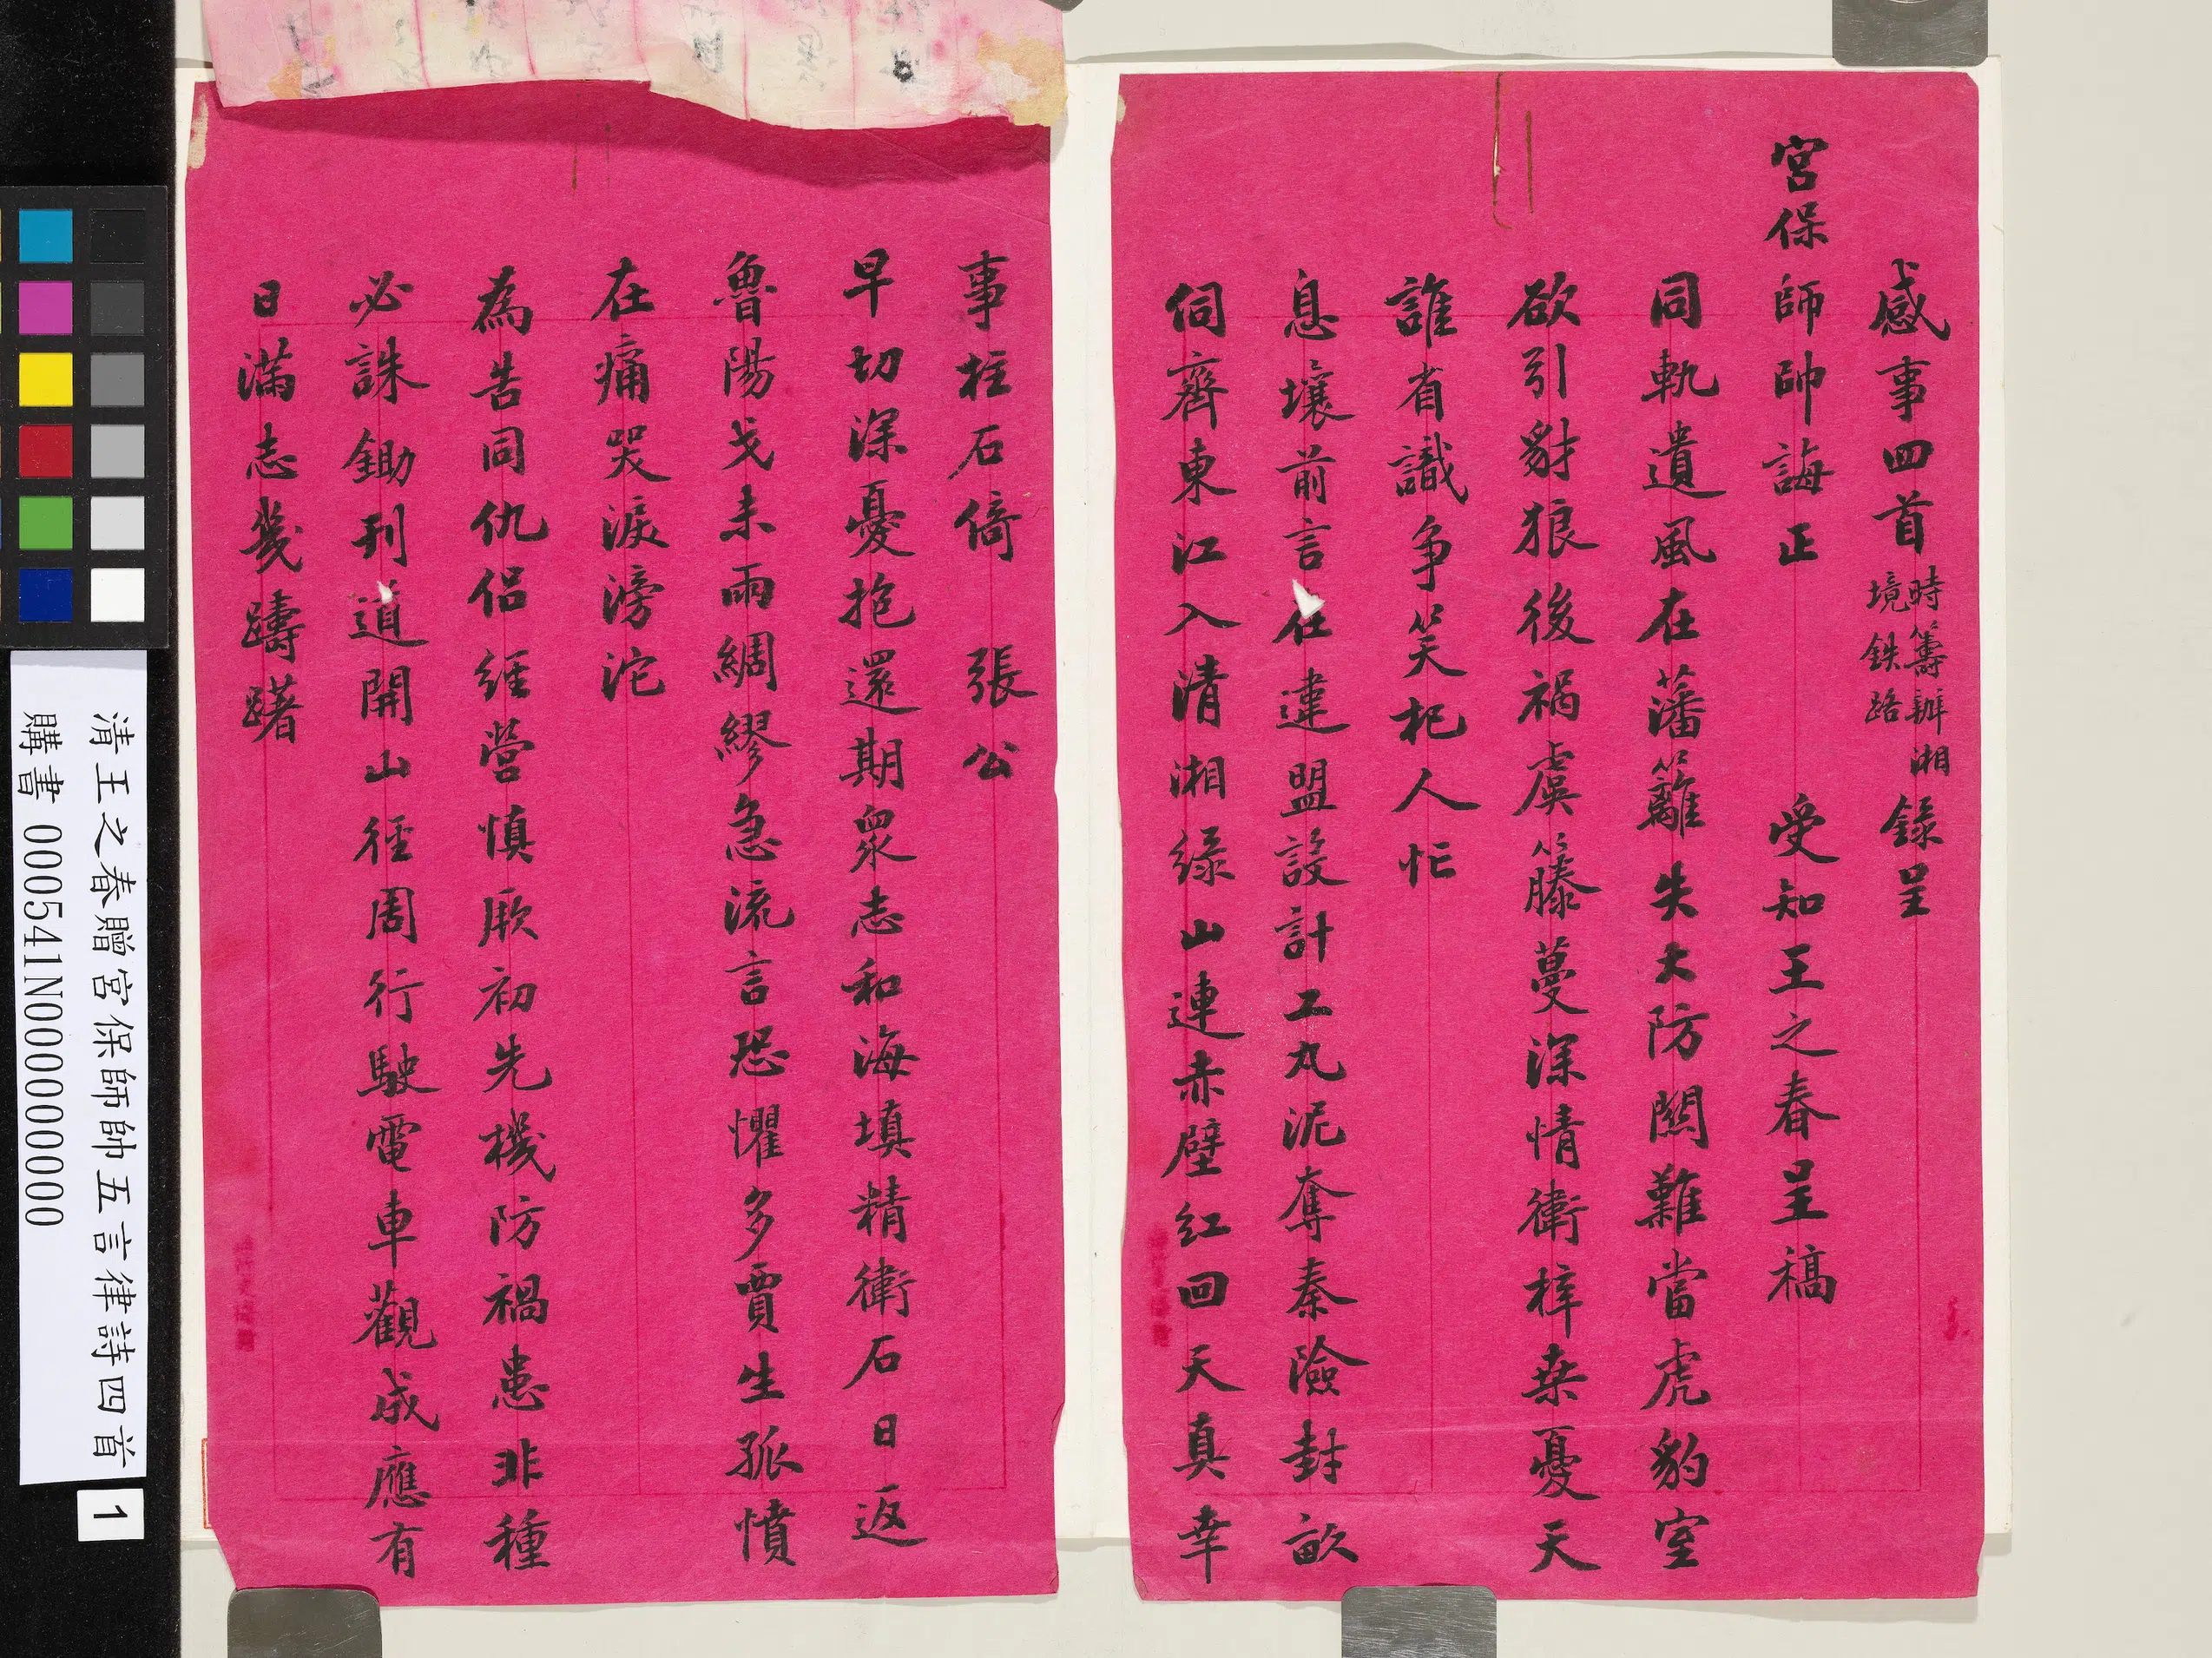 感事四首 時籌辦湘境鉄路 錄呈
宮保師帥誨正 受知王之春呈稿
同軌遺風在藩籬失大防闗難當虎豹室
欲引豺狼後禍虞籐蔓深情衛梓桒憂天
誰省識争笑杞人忙
息壤前言在違盟設計工丸泥奪秦險封畝
伺齊東江入清湘綠山連赤壁紅回天真幸
事拄石倚張公
早切深憂抱還期衆志和海填精衛石日返
魯陽戈未雨綢繆急流言恐懼多賈生孤憤
在痛哭淚滂沱
為告同仇侶經營慎厥初先機防禍患非種
必誅鋤刊道開山徑周行駛電車觀成應有
日滿志幾躊躇
清王之春贈宮保師帥五言律詩四首
購書 000541N000000000
1